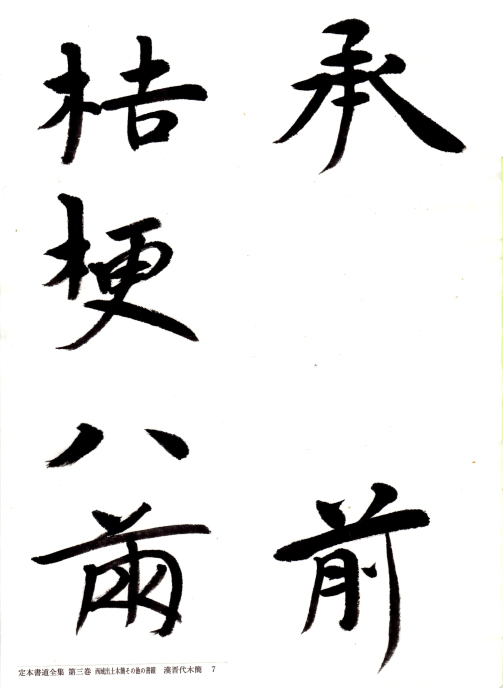 承前
桔梗八兩
定本書道全集 第三巻 西域出土木簡その他の書蹟 漢晋代木簡 7